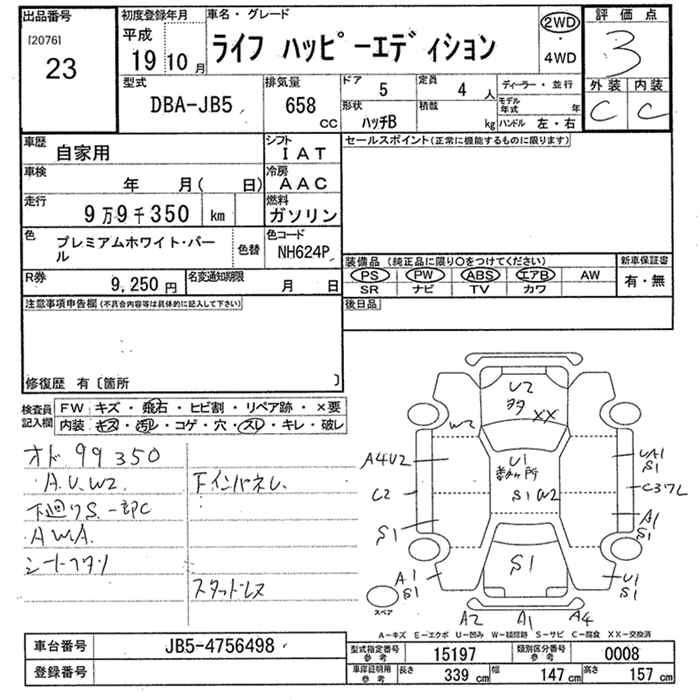 出品番号
[2076]
23
初度登録年月
平成
19 10月
車名・グレード
ライフ ハッピーエディション
2WD
4WD
評価点
3
外装 内装
C C
型式
DBA-JB5
排気量
658
CC
ドア 5
定員 4 人
形状 ハッチB
積載 kg
ディーラー・並行
モデル年式 年
ハンドル 左・右
車歴
自家用
シフト
IAT
車検
年 月( 日)
冷房
AAC
走行
9万9千350 km
燃料
ガソリン
色
プレミアムホワイト・パール
色替
色コード
NH624P
R券
9,250 円
名変通知期限
月 日
セールスポイント(正常に機能するものに限ります)
装備品 (純正品に限り○をつけてください)
PS PW ABS エアB AW
SR ナビ TV カワ
新車保証書
有・無
後日品
注意事項申告欄(不具合内容等は具体的に記入して下さい)
修復歴 有〔箇所 〕
検査員記入欄
FW キズ・飛石・ヒビ割・リペア跡・×要
内装 キズ・汚レ・コゲ・穴・スレ・キレ・破レ
オド 99350
A.U.W2
下廻りS.一部C
AWA
下インパネレ
スタッドレス
U2
XX
W2
A4U2
U1
S1 W2
UA1
S1
C2
S1
A1
S1
S1
A1
S1
U1
S1
A2
A1
A4
スペア
A－キズ E－エクボ U－凹み W－補修跡 S－サビ C－腐食 XX－交換済
車台番号
JB5-4756498
登録番号
型式指定番号 参考
15197
類別区分番号 参考
0008
車庫証明用 参考
長さ 339 cm
幅 147 cm
高さ 157 cm